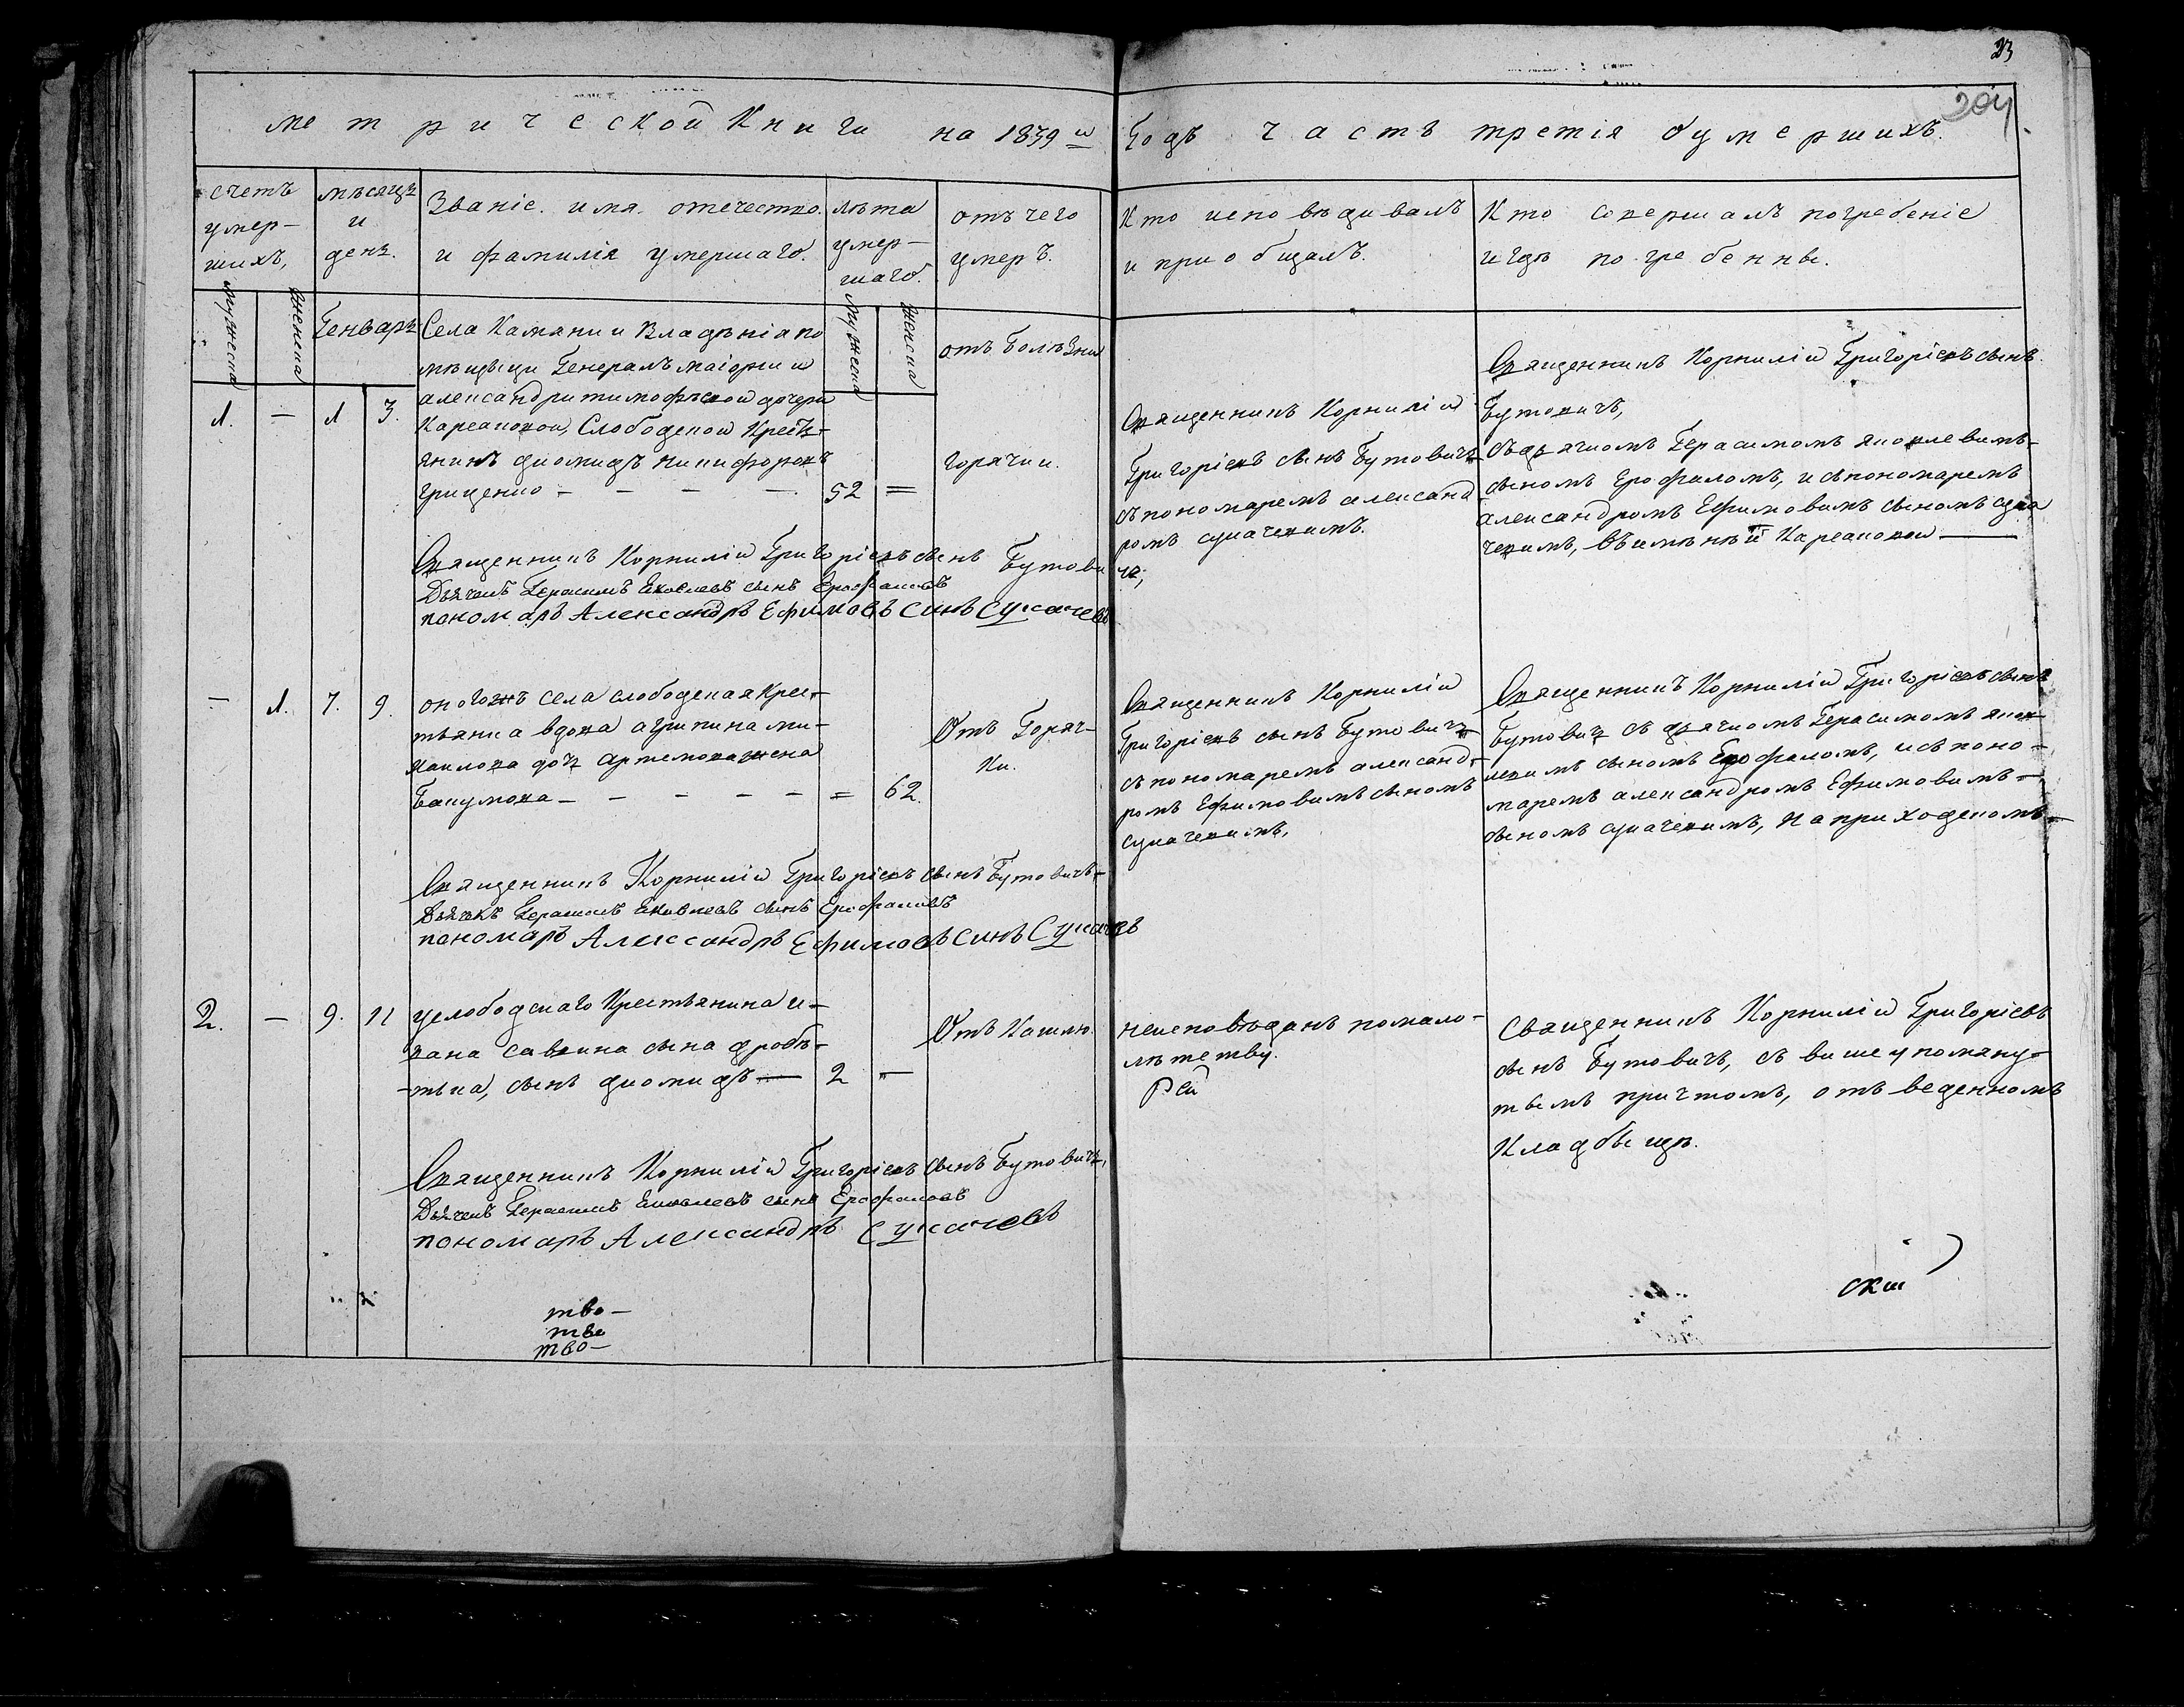 23
204
метрической Книги на 1839й Годъ часть третія оумершихъ.
счетъ
умер-
шихъ,
мѣсяцъ
и
день.
Званіе. имя. отечество.
и фамилія умершаго.
лѣта
умер-
шаго.
отъ чего
умеръ.
Кто исповѣдивалъ
и приобщалъ.
Кто совершалъ погребеніе
и гдѣ погребенны.
мужеска
женска
Генварь
мужеска
женска
1.
—
1
3.
Села Камянки Владѣнія по
мѣщыци Генералъ маіорши
александри тимофѣвой дочери
Слободской Кресть-
янинъ диомидъ никифоровъ
Гриценко — — — —
52
=
отъ болѣзни
горячки.
Священникъ Корнилій
Григоріевъ сынъ Бутовичъ
съ пономаремъ александ
ромъ сукачевимъ.
Священникъ Корнилій Григоріевъ сынъ
Бутовичъ,
съ дячкомъ Герасимомъ яковлевимъ-
сыномъ Ерофаломъ, и съ пономаремъ
александромъ Ефимовимъ сыномъ сука
чевимъ, въ имѣніи
Священникъ Корнилій Григоріевъ сынъ Бутови
чъ,
Дьячекъ Герасимъ Яковлевъ сынъ Ерофаловъ
пономарь Александръ Ефимовъ синъ Сукачевъ
—
1.
7.
9.
оногожъ села слободская Крес-
тьянка вдова агрипина ми-
хаилова дочь артемова жена
Бакумова — — — — —
=
62.
Отъ Горяч-
ки.
Священникъ Корнилій
Григоріевъ сынъ Бутовичъ
съ пономаремъ александ-
ромъ Ефимовимъ сыномъ
сукачевимъ,
Священникъ Корнилій Григоріевъ сынъ
Бутовичъ съ дячкомъ Герасимомъ яков-
левимъ сыномъ Ерофаломъ, и съ поно-
маремъ александромъ Ефимовимъ-
сыномъ сукачевимъ, на приходскомъ-
Священникъ Корнилій Григоріевъ сынъ Бутовичъ,
Дьячекъ Герасимъ Яковлевъ сынъ Ерофаловъ
пономарь Александръ Ефимовъ синъ Сукачевъ
2.
—
9.
11
услободскаго Крестьянина и-
вана саввина сына дробѣ-
-тька, сынъ диомидъ —
2
—
Отъ Кашлю.
неисповѣданъ помало-
лѣтству.
Священникъ Корнилій Григоріевъ
сынъ Бутовичъ, съ вишеупомяну-
тымъ причтомъ, отъ веденномъ
Кладбыщѣ.
Священникъ Корнилій Григоріевъ сынъ Бутовичъ,
Дьячекъ Герасимъ Яковлевъ сынъ Ерофаловъ
пономарь Александръ Сукачевъ
тво-
тво
тво-
ски